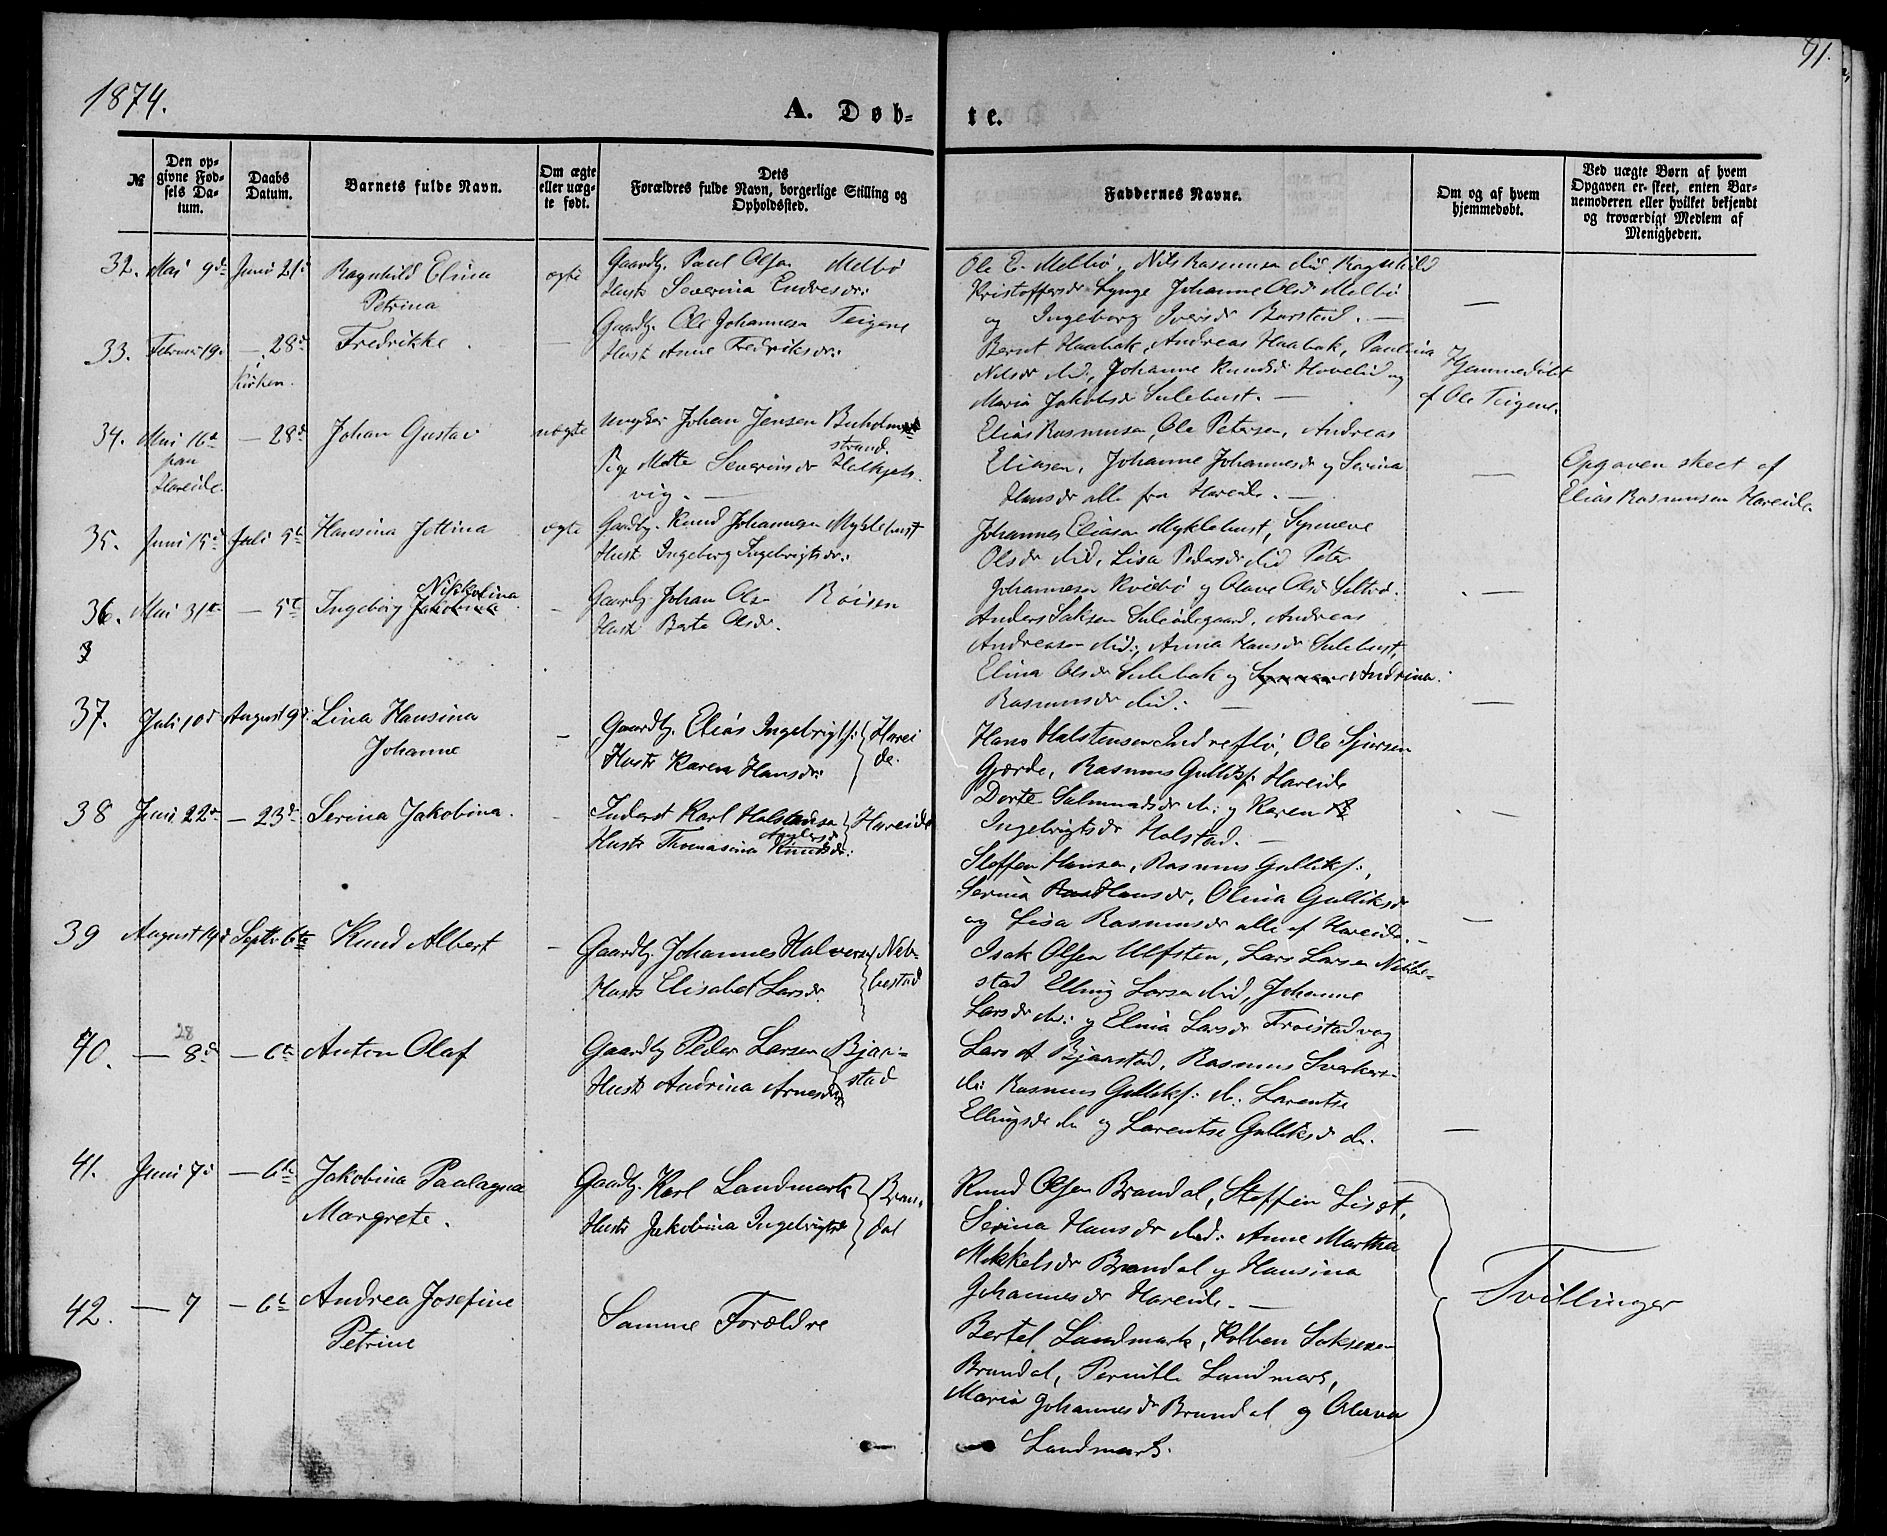 1874.
91.
A. Døb-
te.
№
Den op-
givne Fød-
sels Da-
tum.
Daabs
Datum.
Barnets fulde Navn.
Om ægte
eller uæg-
te født.
Dets
Forældres fulde Navn, borgerlige Stilling og
Opholdssted.
Faddernes Navne.
Om og af hvem
hjemmedøbt.
Ved uægte Børn af hvem
Opgaven er skeet, enten Bar-
nemoderen eller hvilket bekjendt
og troværdigt Medlem af
Menigheden.
32. Mai 9de Juni 21de Ragnhild Elsina
Petrina
ægte
Gaardb. Paul Olsen Melbø
Hust. Severina Endresdr:
Ole E. Melbø, Nils Rasmussen ibid, Ragnhild
Kristoffersdr Lynge Johanne Olsdr Melbø
og Ingeborg Iversdr Barstad. —
—
33. Februar 19de — 28de
i Kirken.
Fredrikke
—
Gaardb. Ole Johannesen Teigene
Hust. Anne Fredriksdr:
Bernt Haabak, Andreas Haabak, Paulina
Nilsdr ibid., Johanne Knudsdr Hovelid og
Maria Jakobsdr Sulebust. —
Hjemmedøbt
af Ole Teigene.
34. Mai 16de
paa
Hareide.
— 28de
Johan Gustav
uægte
Ungkar Johan Jensen Buholm
strand.
Pige Mette Severinsdr Helkjels
vig. —
Elias Rasmussen, Ole Petersen, Andreas
Eliasen, Johanne Johannesdr og Serina
Hansdr alle fra Hareide. —
—
Opgaven skeet af
Elias Rasmussen Hareide
35. Juni 15de Juli 5te Hansina Jettina
ægte
Gaardb. Knud Johannesen Myklebust
Hust. Ingeborg Ingebrigtsdr:
Johannes Eliasen Myklebust, Synneve
Olsdr ibid, Lisa Pedersdr ibid Peter
Johannesen Kvidbø og Olave Olsdr
—
36. Mai 31te — 5te Ingeborg Jakobina
Nikolina
—
Gaardb. Johan Olsen Røisen
Hust. Berte Olsdr.
Anders Saksen Suleødegaard, Andreas
Andreasen ibid:, Anna Hansdr Sulebust,
Elina Olsdr Sulebak og Synneve Andrina
Rasmusdr ibid: —
—
3
37. Juli 10de August 9de Lina Hansina
Johanne
—
Gaardb. Elias Ingebrigts: Harei
Hust. Karen Hansdr: de.
Hans Halstensen Indreflø, Ole Sjursen
Gjerde, Rasmus Gulliks: Hareide
Dorte Salmundsdr ib: og Karen
Ingebrigtsdr Holstad. —
—
38 Juni 22de — 23de Serina Jakobina.
Inderst Karl Halstensen Hareide
Anders
Hust. Thomasina Knudsdr:
Steffen Hansen, Rasmus Gulliks:,
Serina Ras Hansdr, Olina Gulliksdr
og Lisa Rasmusdr alle af Hareide. —
—
39 August 19de Septbr 6te Knud Albert
—
Gaardb. Johannes Halvorsen Neb-
Hust. Elisabet Larsdr. bestad
Isak Olsen Ulfsten, Lars Larsen Nebbe-
stad Elling Larsen ibid, Johanne
Larsdr ib: og Elina Larsdr Frøistadvog
40. — 8de
28
— 6te Anton Olaf
Gaardb. Peder Larsen Bjaa-
Hust. Andrina Arnesdr: stad
Lars A Bjaastad, Rasmus Sverkers-
do: Rasmus Gulliks: do: Larentse
Ellingsdr do og Larentse Gulliksdr do.
—
41. Juni 7de — 6te Jakobina Paulagna
Margrete.
Gaardb. Karl Landmark Bran-
Hust. Jakobina Ingebrigtsdr dal
Knud Olsen Brandal, Steffen Liset,
Serina Hansdr ibid: Anne Martha
Mikkelsdr Brandal og Hansina
Johannesdr Hareide. —
42. — 7 — 6te Andrea Josefine
Petrine
Samme Forældre
Bertel Landmark, Kolben Saksesen
Brandal, Pernille Landmark,
Maria Johannesdr Brandal og Olava
Landmark.
Tvillinger